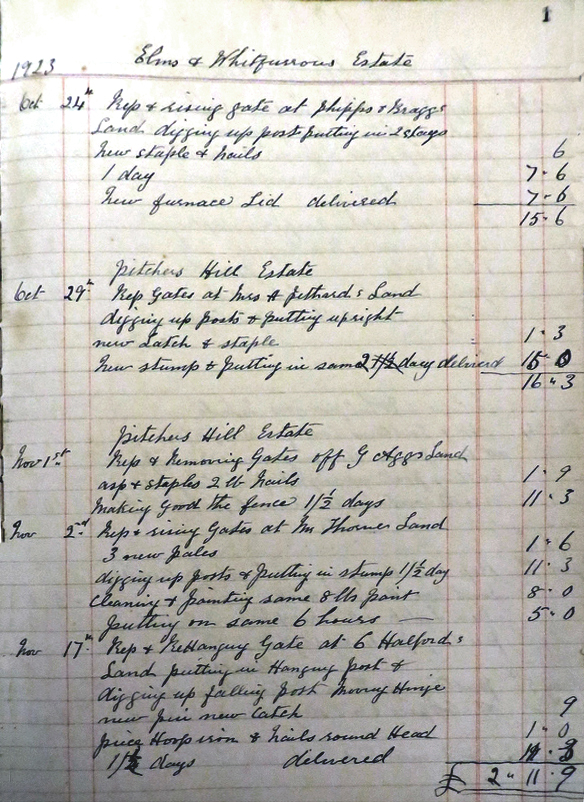 1
1923 Elms & Whitfurrows Estate
Oct 24th Rep & rising gate at Phipps & Braggs
Land digging up post putting in 2 stays
New staple & nails 6
1 day 7 - 6
New furnace Lid delivered 7 - 6
15 - 6
Pitchers Hill Estate
Oct 29th Rep Gates at Mrs A Jethards Land
digging up posts & putting upright
new Latch & staple 1 - 3
New stump & putting in same 2 day deliverd 15 - 0
16 - 3
Pitchers Hill Estate
Nov 1st Rep & Removing Gates off G Aggs Land
asp & staples 2 lb nails 1 - 9
Making Good the fence 1½ days 11 - 3
Nov 2nd Rep & rising Gates at Mr Thorner Land
3 new pales 1 - 6
digging up posts & putting in stump 1½ day 11 - 3
Cleaning & Painting same 8 lbs paint 8 - 0
putting on same 6 hours — 5 - 0
Nov 17th Rep & ReHanging Gate at G Halfords
Land putting in Hanging post &
digging up falling Post Moving Hinge
new pin new Catch 9
piece Hoop iron & nails round Head 1 - 0
days delivered
£ 2 " 11 - 9